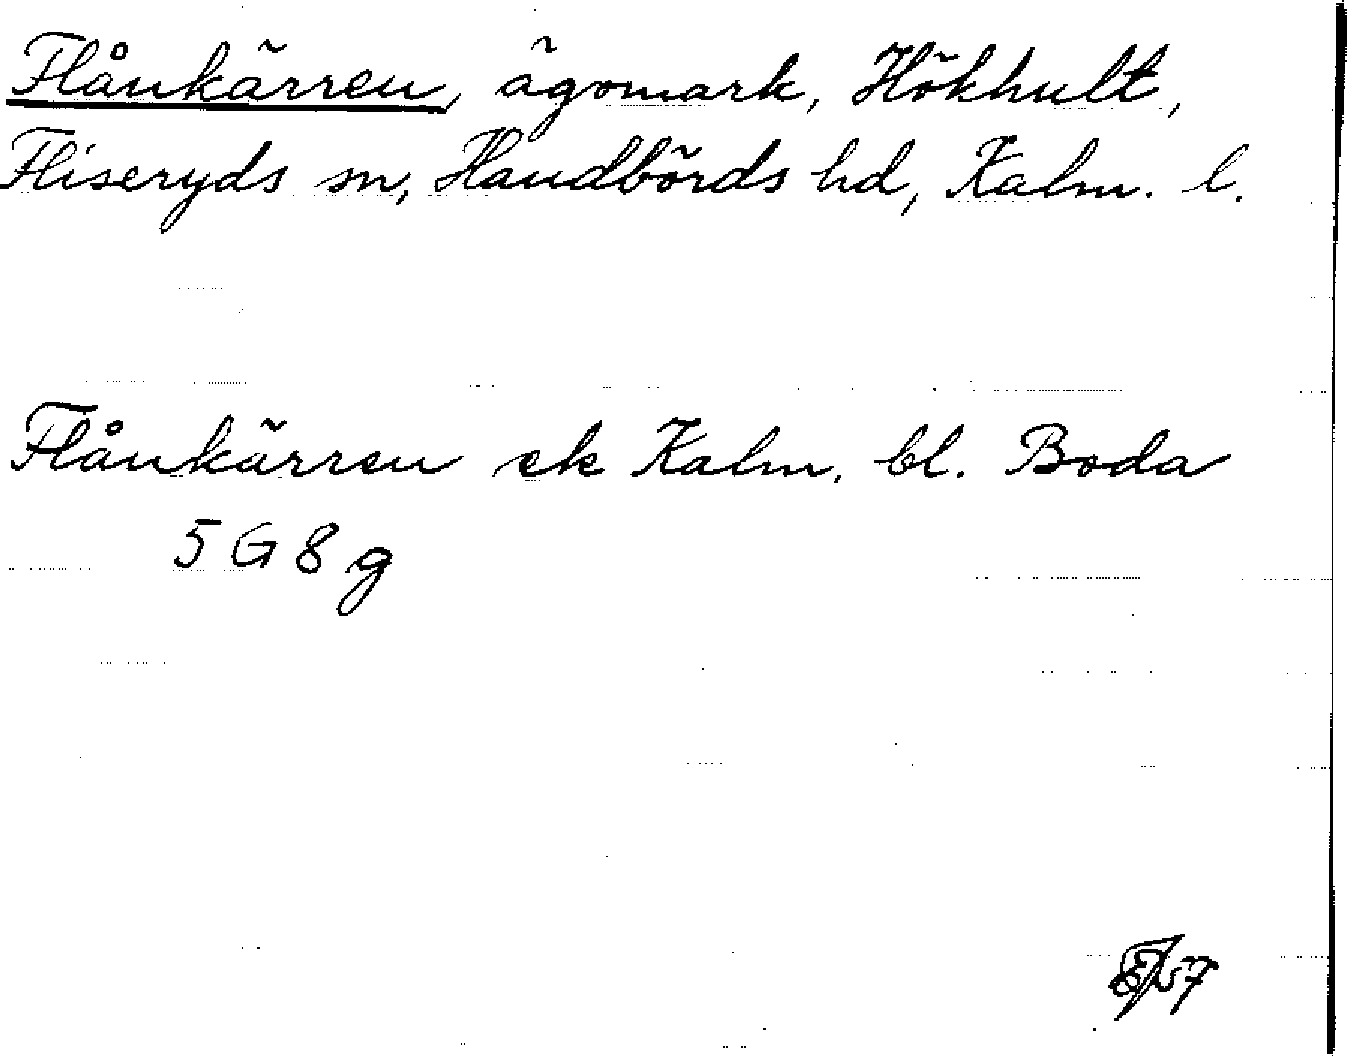 Flånkärren, ägomark, Hökhult,
Fliseryds sn, Handbörds hd, Kalm. l.
Flånkärren ek Kalm. bl. Boda
5 G 8 g